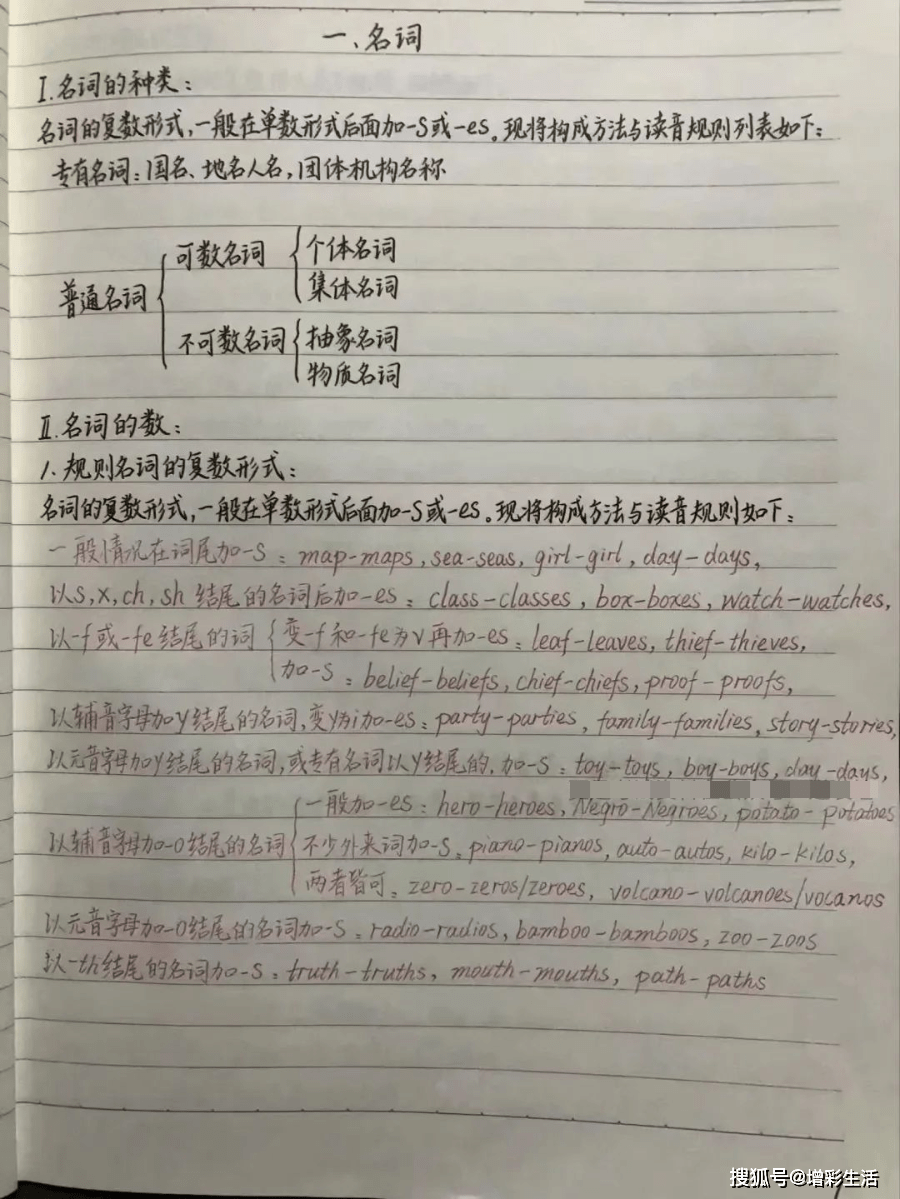 一、名词
I.名词的种类：
名词的复数形式，一般在单数形式后面加-s或-es。现将构成方法与读音规则列表如下：
专有名词：国名、地名人名，团体机构名称
普通名词
可数名词
个体名词
集体名词
不可数名词
抽象名词
物质名词
II.名词的数：
1.规则名词的复数形式：
名词的复数形式，一般在单数形式后面加-s或-es。现将构成方法与读音规则如下：
一般情况在词尾加-s：map-maps, sea-seas, girl-girl, day-days,
以s,x,ch,sh结尾的名词后加-es：class-classes, box-boxes, watch-watches,
以-f或-fe结尾的词
变-f和-fe为v再加-es：leaf-leaves, thief-thieves,
加-s：belief-beliefs, chief-chiefs, proof-proofs,
以辅音字母加y结尾的名词，变y为i加-es：party-parties, family-families, story-stories,
以元音字母加y结尾的名词，或专有名词以y结尾的，加-s：toy-toys, boy-boys, day-days,
以辅音字母加-o结尾的名词
一般加-es：hero-heroes, Negro-Negroes, potato-potatoes
不少外来词加-s：piano-pianos, auto-autos, kilo-kilos,
两者皆可：zero-zeros/zeroes, volcano-volcanoes/vocanos
以元音字母加-o结尾的名词加-s：radio-radios, bamboo-bamboos, zoo-zoos
以-th结尾的名词加-s：truth-truths, mouth-mouths, path-paths
搜狐号@增彩生活